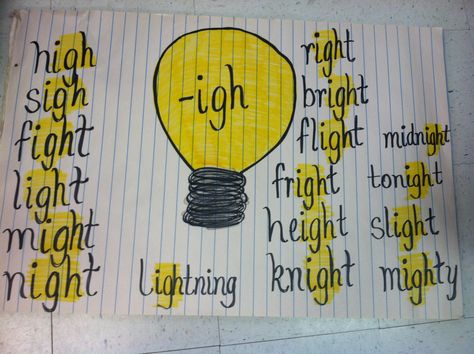 high
sigh
fight
light
might
night
-igh
lightning
right
bright
flight
fright
height
knight
midnight
tonight
slight
mighty